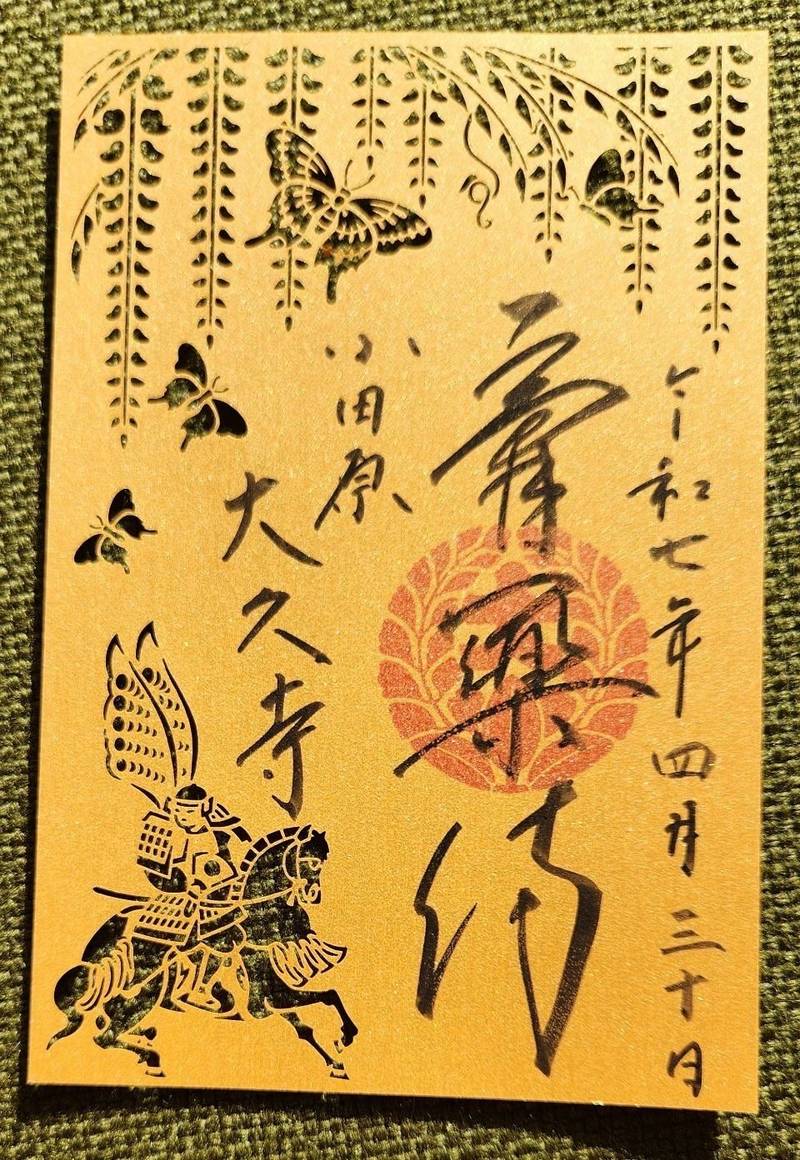 令和七年四月三十日
膏藥侍
小田原
大久寺